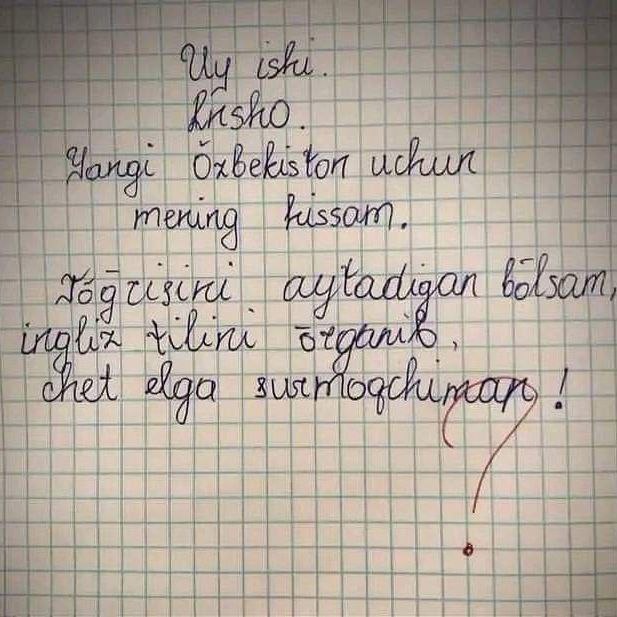 Uy ishi.
Insho.
Yangi Õzbekiston uchun
mening hissam.
Tõğrisini aytadigan bõlsam,
ingliz tilini õrganib,
chet elga surmoqchiman!
?